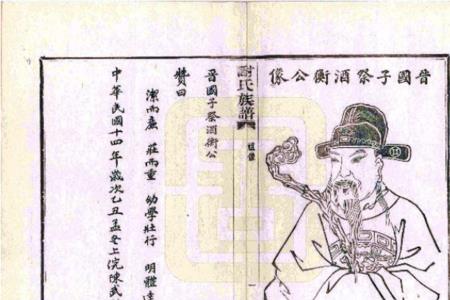 晉國子祭酒衡公像
謝氏族譜
晉國子祭酒衡公
贊曰
潔而廉 莊而重 幼學壯行 明體達
中華民國十四年歲次乙丑孟冬上浣陳武